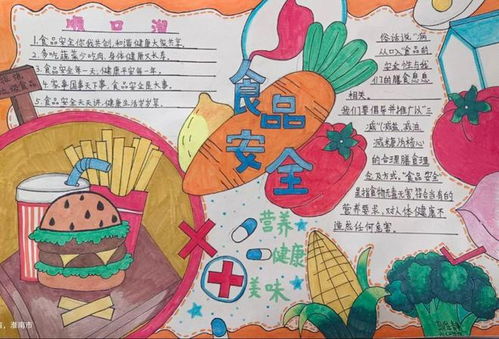 顺口溜
1.食品安全你我共创,和谐健康大家共享。
2.多吃蔬菜少吃肉,身体健康又长寿。
3.食品安全每一天,健康平安每一年。
4.家事国事天下事,食品安全是大事。
5.食品安全天天讲,健康生活岁岁享。
食品
安全
营养
健康
美味
俗话说“病
从口入”食品的
安全性与我
们的膳食息息
相关。
我们要倡导并推广以“三
减”(减盐、减油、
减糖)为核心
的合理膳食理
念及方式。“食品安全”
是指食物无毒、无害,符合应有的
营养要求,对人体健康不
造成任何危害。
淮南市